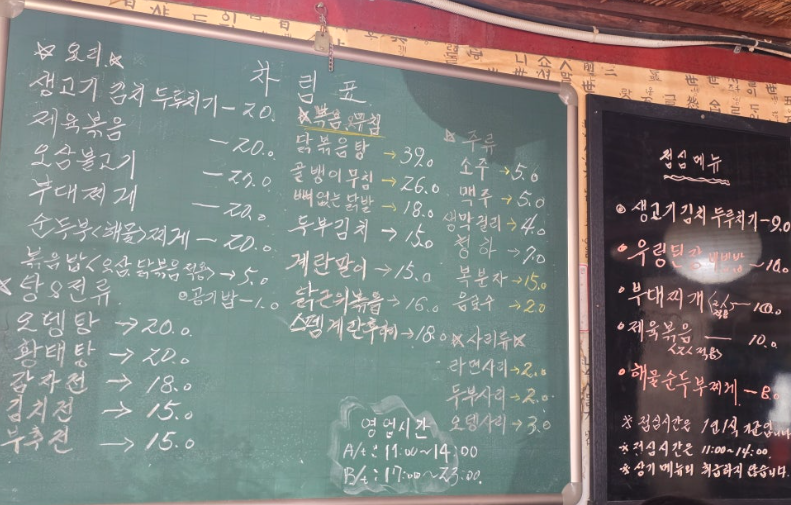 차림표
☆요리☆
생고기 김치 두루치기 - 20.0
제육볶음 - 20.0
오삼불고기 - 25.0
부대찌게 - 20.0
순두부<해물>찌게 - 20.0
볶음밥<오삼, 닭볶음 적용> → 5.0
○공기밥 - 1.0
☆탕&전류
오뎅탕 → 20.0
황태탕 → 20.0
감자전 → 18.0
김치전 → 15.0
부추전 → 15.0
☆볶음&무침
닭볶음탕 → 39.0
골뱅이무침 → 26.0
뼈없는 닭발 → 18.0
두부김치 → 15.0
계란말이 → 15.0
볶음 → 16.0
스펨계란후라이 → 18.0
주류
소주 → 5.0
맥주 → 5.0
생막걸리 → 4.0
청하 → 7.0
복분자 → 15.0
음료수 → 2.0
☆사리류☆
라면사리 → 2.0
두부사리 → 2.0
오뎅사리 → 3.0
영업시간
A/t : 11:00~14:00
B/t : 17:00~23:00
점심메뉴
생고기 김치 두루치기 - 9.0
우렁된장 - 10.0
부대찌개 - 10.0
제육볶음 - 10.0
해물순두부찌게 - 8.0
※점심시간은 1인1식 기준입니다
※점심시간은 11:00~14:00
※상기 메뉴외 취급하지 않습니다.